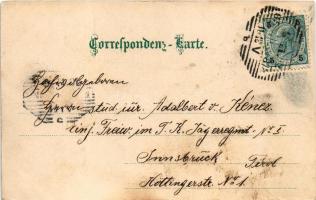 Correspondenz-Karte.
Hochwolgeboren
Herrn stud jur. Adalbert v. Kénez
Einj. Freiw. im T. K. Jägerregmt No 5.
Innsbrück
Tirol
Höttingerstr. No 1.
5